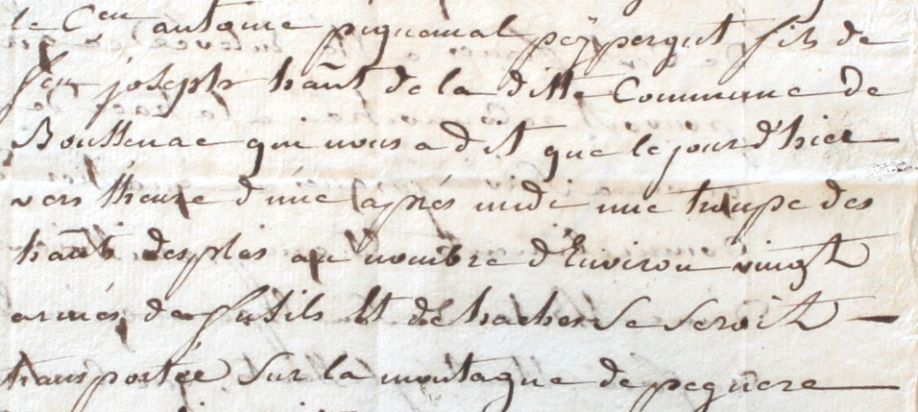 le Cen antoine piquemal peypergut fils de
feu joseph hãnt de la ditte Commune de
Boussenac qui nous a dit que le jour d'hier
vers lheure d'une après midi une troupe des
hãnts desplas au nombre d'Environ vingt
armés de fusils Et de haches Se Seroit
transportée Sur la montagne de peguere